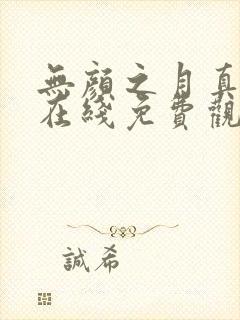 無顔之月真
在綫免費觀
誠希